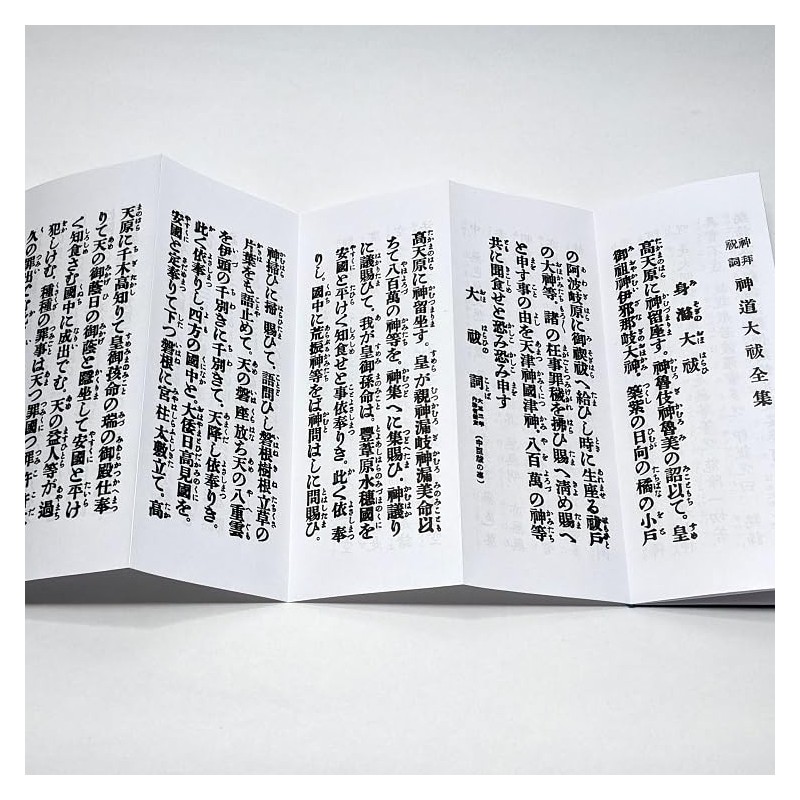 神拜祝詞 神道大祓全集
身滌大祓
高天原に神留座す。神魯伎神魯美の詔以て。皇
御祖神伊邪那岐大神。築紫の日向の橘の小戸
の阿波岐原に御禊祓へ給ひし時に生座る祓戸
の大神等。諸の枉事罪穢を拂ひ賜へ淸め賜へ
と申す事の由を天津神國津神。八百萬の神等
共に聞食せと恐み恐み申す
大祓詞
高天原に神留坐す。皇が親神漏岐神漏美命以
ちて八百萬の神等を。神集へに集賜ひ。神議り
に議賜ひて。我が皇御孫命は。豐葦原水穗國を
安國と平けく知食せと事依奉りき。此く依奉
りし。國中に荒振神等をば神問はしに問賜ひ。
神掃ひに掃賜ひて。語問ひし磐根樹根立草の
片葉をも語止めて。天の磐座放ち天の八重雲
を伊頭の千別きに千別きて。天降し依奉りき。
此く依奉りし四方の國中と。大倭日高見國を。
安國と定奉りて下つ磐根に宮柱太敷立て。高
天原に千木高知りて皇御孫命の瑞の御殿仕奉
りて天の御蔭日の御蔭と隱坐して安國と平け
く知食さむ國中に成出でむ。天の益人等が過
犯しけむ。種種の罪事は天つ罪國つ罪